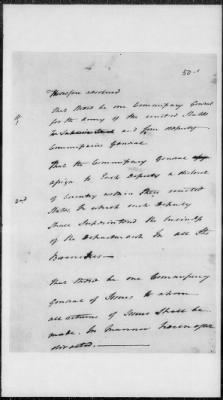 50
Therefore resolved
That there be one Commissary General
for the Army of the united States
and four deputy
Commissaries General
That the Commissary General
assign to Each Deputy a district
2nd
of Country within these united
States. In which such Deputy
Shall Superintend the business
of the Department in all its
Branches—
That there be one Commissary
General of Issues to whom
all returns of Issues Shall be
made. In manner hereinafter
directed.—